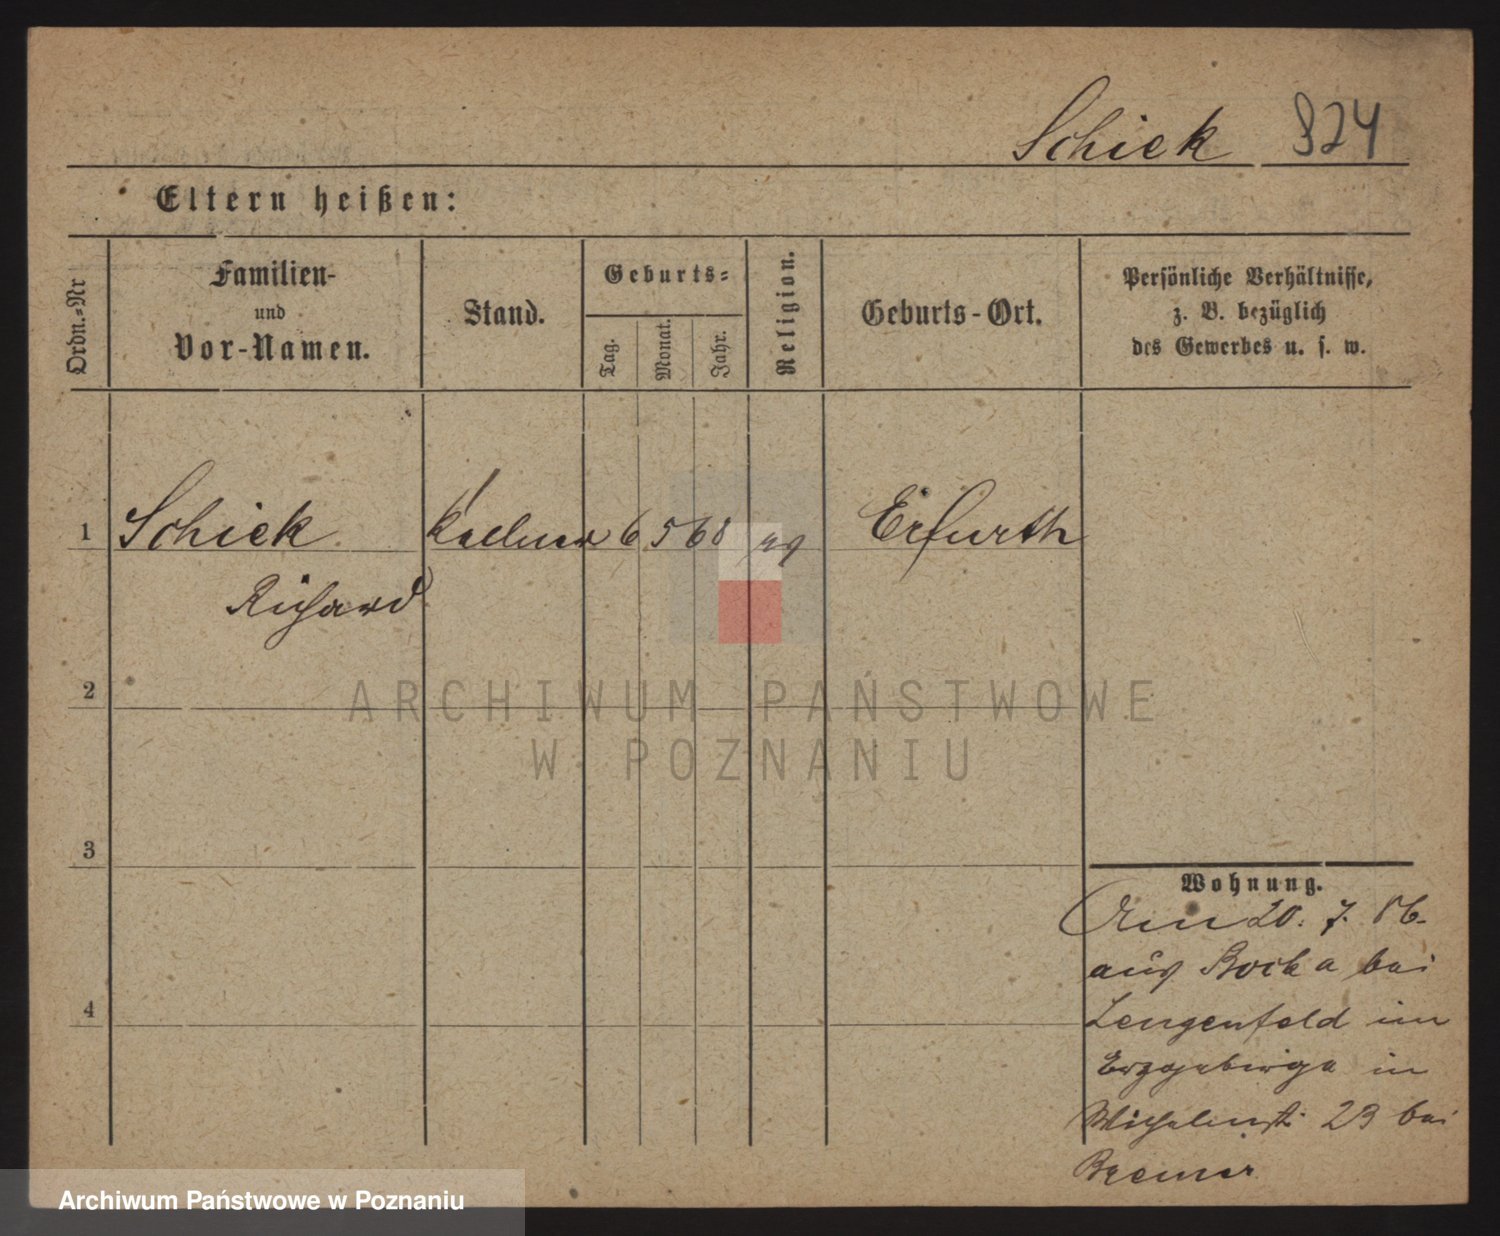 Schiek 824
Eltern heißen:
Ordn.-Nr
Familien-
und
Vor-Namen.
Stand.
Geburts-
Tag.
Monat.
Jahr.
Religion.
Geburts-Ort.
Persönliche Verhältnisse,
z. B. bezüglich
des Gewerbes u. s. w.
1 Schiek Kellner 6 5 68 ev Erfurth
Richard
2
ARCHIWUM PAŃSTWOWE
W POZNANIU
3
Wohnung.
Am 20. 7. 86.
aus Bocka bei
Lengenfeld im
4
Erzgebirge in
23 bei
Archiwum Państwowe w Poznaniu